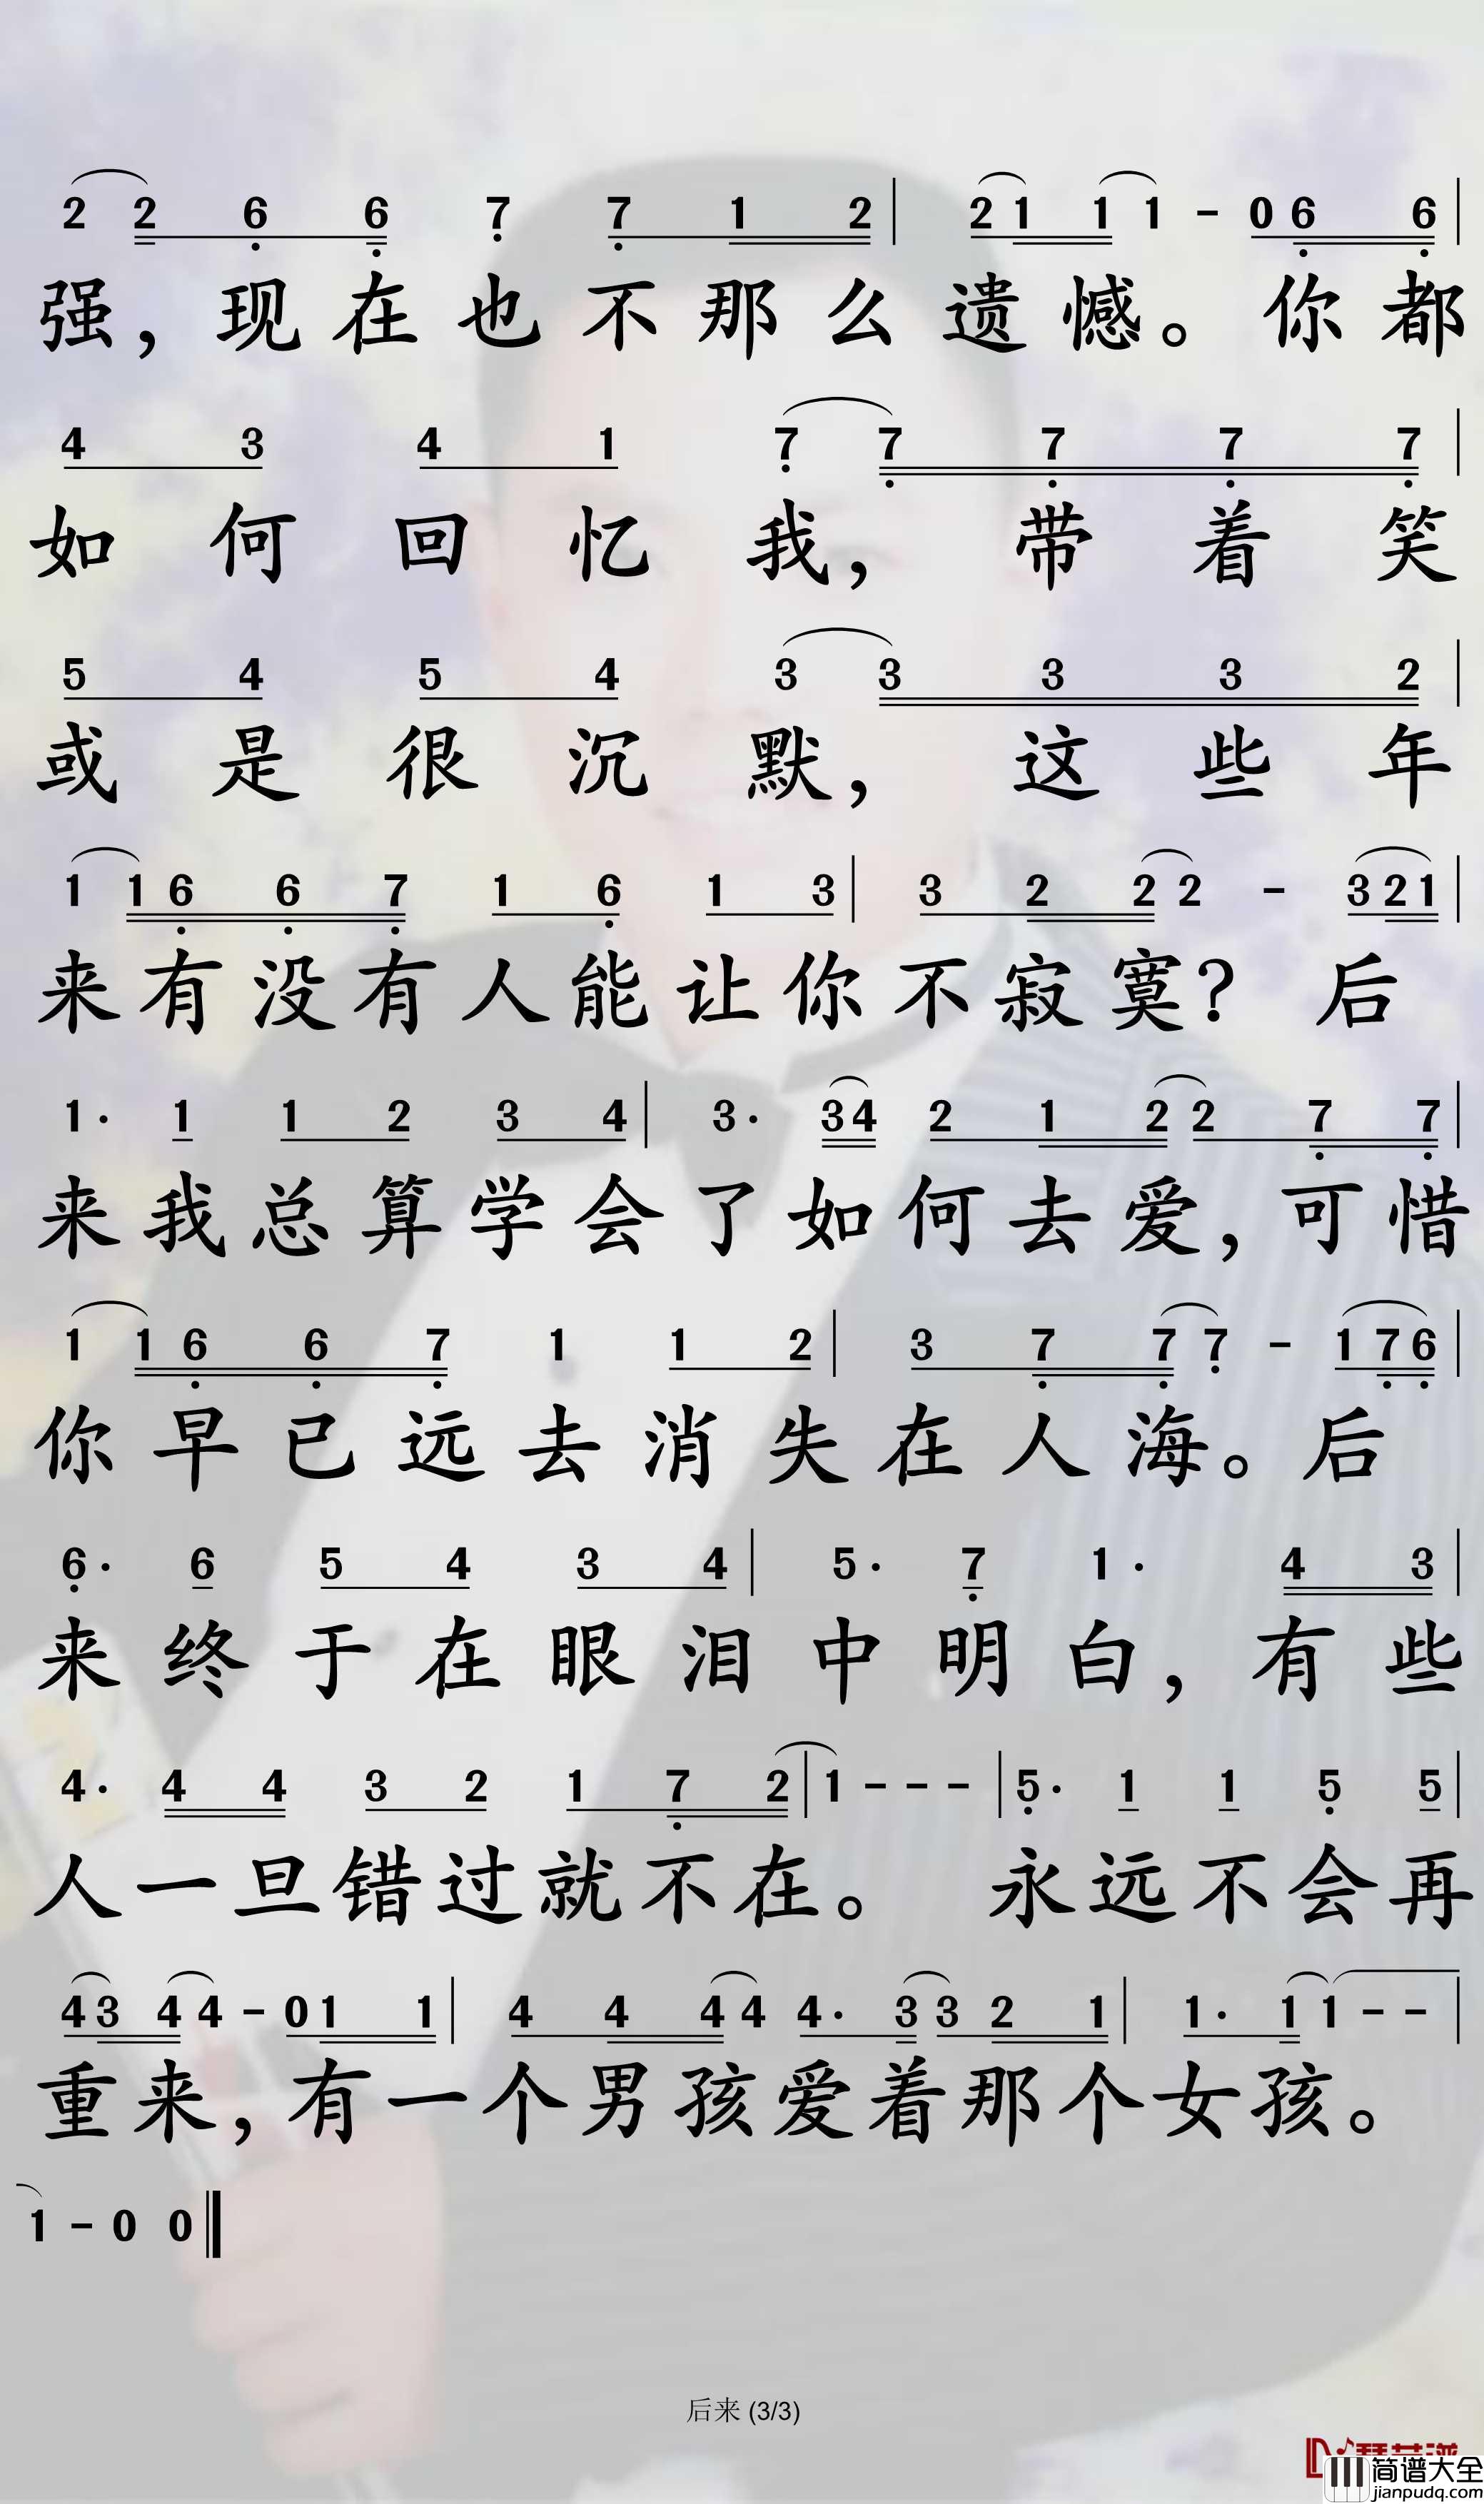 2 2 6 6 7 7 1 2 | 2 1 1 1 - 0 6 6 |
强，现在也不那么遗憾。你都
4 3 4 1 7 7 7 7 7 |
如何回忆我，带着笑
5 4 5 4 3 3 3 3 2 |
或是很沉默，这些年
1 1 6 6 7 1 6 1 3 | 3 2 2 2 - 3 2 1 |
来有没有人能让你不寂寞？后
1· 1 1 2 3 4 | 3· 3 4 2 1 2 2 7 7 |
来我总算学会了如何去爱，可惜
1 1 6 6 7 1 1 2 | 3 7 7 7 - 1 7 6 |
你早已远去消失在人海。后
6· 6 5 4 3 4 | 5· 7 1· 4 3 |
来终于在眼泪中明白，有些
4· 4 4 3 2 1 7 2 | 1 - - - | 5· 1 1 5 5 |
人一旦错过就不在。永远不会再
4 3 4 4 - 0 1 1 | 4 4 4 4 4· 3 3 2 1 | 1· 1 1 - - |
重来，有一个男孩爱着那个女孩。
1 - 0 0 ‖
后来 (3/3)
简谱大全
jianpudq.com